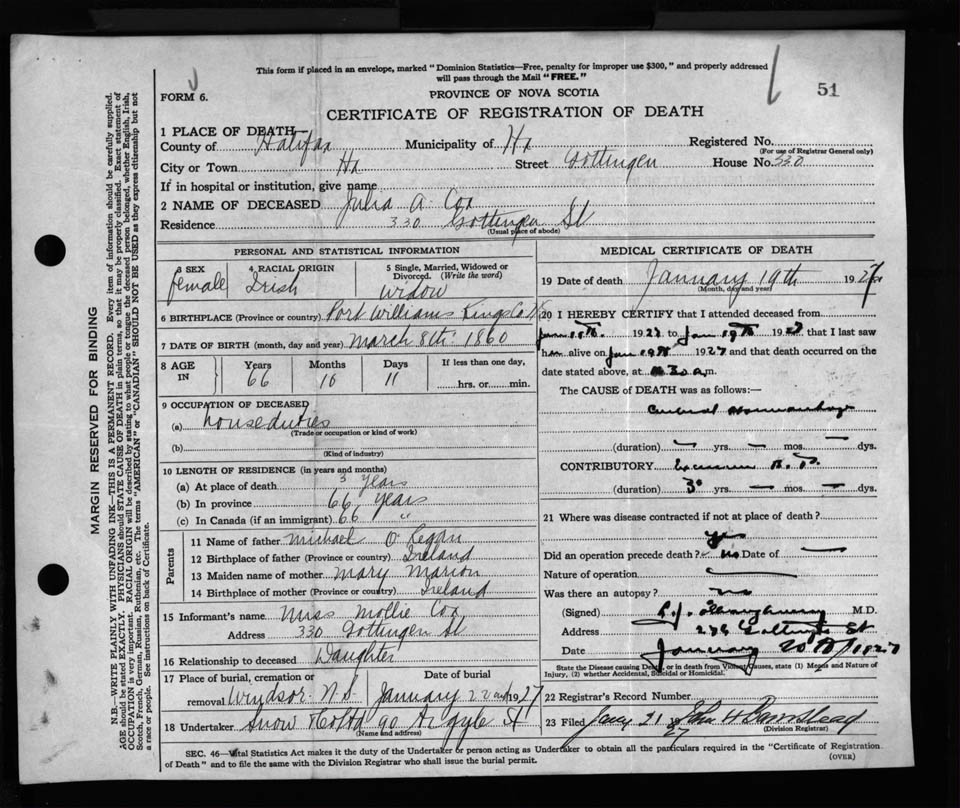 This form if placed in an envelope, marked "Dominion Statistics—Free, penalty for improper use $300," and properly addressed
will pass through the Mail "FREE."
51
FORM 6.
PROVINCE OF NOVA SCOTIA
CERTIFICATE OF REGISTRATION OF DEATH
1 PLACE OF DEATH—
County of Halifax Municipality of Hx Registered No.
(For use of Registrar General only)
City or Town Hx Street Gottingen House No. 330
If in hospital or institution, give name
2 NAME OF DECEASED Julia A. Cox
Residence 330 Gottingen St
(Usual place of abode)
PERSONAL AND STATISTICAL INFORMATION
3 SEX 4 RACIAL ORIGIN 5 Single, Married, Widowed or
Divorced. (Write the word)
female Irish widow
6 BIRTHPLACE (Province or country) Port Williams Kings Co N.S.
7 DATE OF BIRTH (month, day and year) March 8th 1860
8 AGE IN Years Months Days If less than one day,
66 10 11 hrs. or min.
9 OCCUPATION OF DECEASED
(a) houseduties
(Trade or occupation or kind of work)
(b)
(Kind of industry)
10 LENGTH OF RESIDENCE (in years and months)
(a) At place of death 3 years
(b) In province 66 years
(c) In Canada (if an immigrant) 66 "
Parents
11 Name of father Michael O'Regan
12 Birthplace of father (Province or country) Ireland
13 Maiden name of mother Mary Marion
14 Birthplace of mother (Province or country) Ireland
15 Informant's name Miss Mollie Cox
Address 330 Gottingen St
16 Relationship to deceased Daughter
17 Place of burial, cremation or Date of burial
removal Windsor N.S. January 22nd 1927
18 Undertaker Snow & Co Ltd 90 Argyle St
(Name and address)
MEDICAL CERTIFICATE OF DEATH
19 Date of death January 19th 1927
(Month, day and year)
20 I HEREBY CERTIFY that I attended deceased from
Jan 1927 to Jan 19th 1927 that I last saw
h alive on Jan 19th 1927 and that death occurred on
the date stated above, at 30 a.m.
The CAUSE of DEATH was as follows:—
Cerebral Hemorrhage
(duration) — yrs. — mos. — dys.
CONTRIBUTORY B.P.
(duration) 3 yrs. — mos. — dys.
21 Where was disease contracted if not at place of death?
yes
Did an operation precede death? no Date of —
Nature of operation —
Was there an autopsy? no
(Signed) M.D.
Address Gottingen St
Date January 20th 1927
State the Disease causing Death, or in death from Violent Causes, state (1) Means and Nature of
Injury, (2) whether Accidental, Suicidal or Homicidal.
22 Registrar's Record Number
23 Filed Jany 21 27 John H Barnstead
(Division Registrar)
SEC. 46—Vital Statistics Act makes it the duty of the Undertaker or person acting as Undertaker to obtain all the particulars required in the "Certificate of Registration
of Death" and to file the same with the Division Registrar who shall issue the burial permit.
(OVER)
MARGIN RESERVED FOR BINDING
N.B.—WRITE PLAINLY WITH UNFADING INK—THIS IS A PERMANENT RECORD. Every item of information should be carefully supplied.
AGE should be stated EXACTLY. PHYSICIANS should STATE CAUSE OF DEATH in plain terms, so that it may be properly classified. Exact statement of
OCCUPATION is very important. RACIAL ORIGIN will be described by stating to what people or tongue the deceased person belonged, whether English, Irish,
Scotch, French, German, Russian, Ruthenian, etc. The terms "AMERICAN" or "CANADIAN" SHOULD NOT BE USED as they express citizenship but not
a race or people. See instructions on back of Certificate.